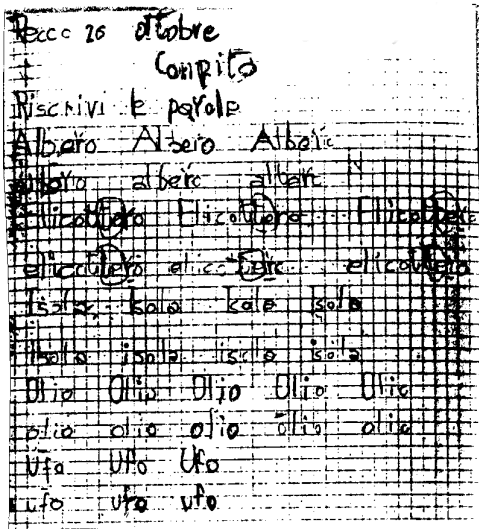 26 ottobre
Compito
Riscrivi le parole
Albero Albero Albero
albero albero albero
Elicottero Elicottero Elicottero
elicottero elicottero elicottero
Isola Isola Isola Isola
isola isola isola isola
Olio Olio Olio Olio Olio
olio olio olio olio olio
Ufo Ufo Ufo
ufo ufo ufo